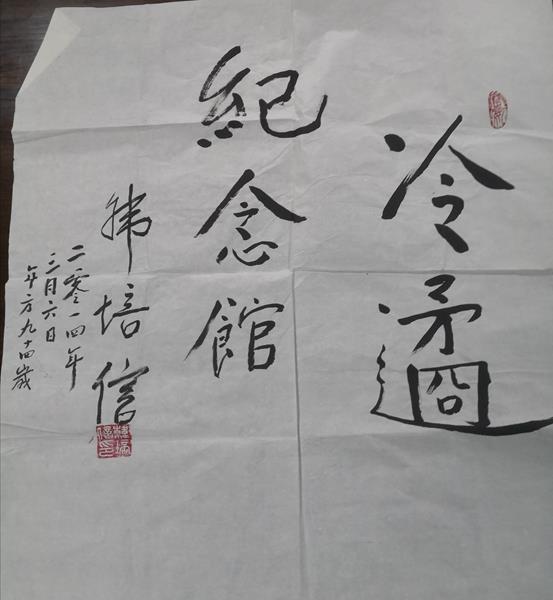 冷遹
紀念館
韩培信
二零一四年
三月六日
年方九十四歲